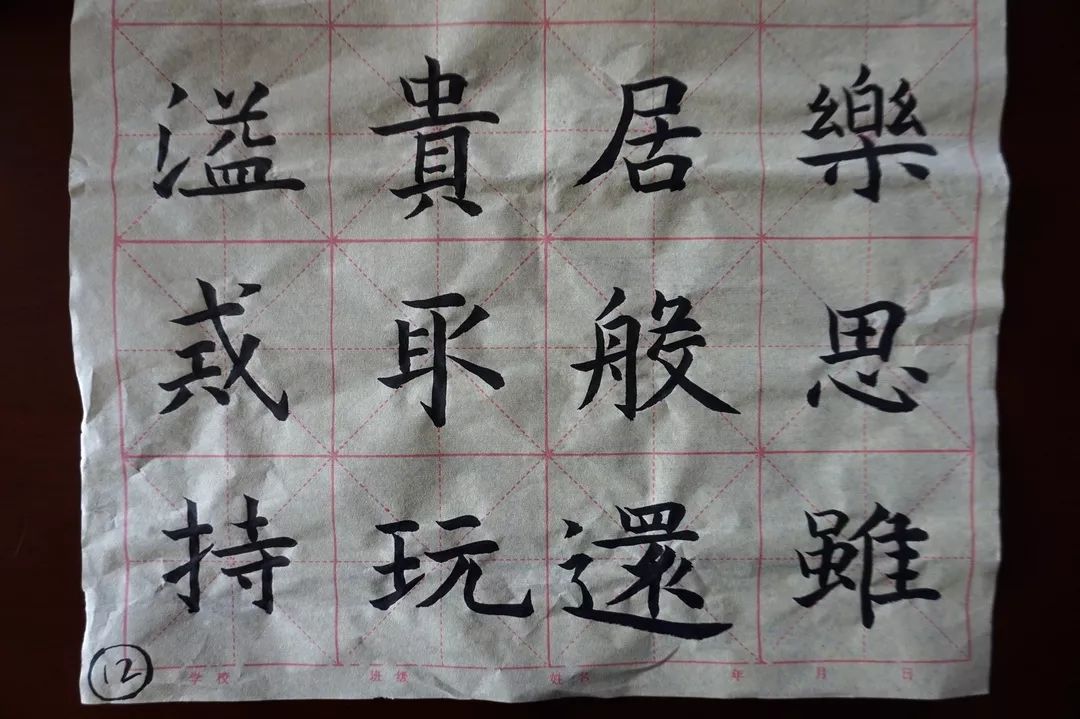 溢貴居樂
戒耳般思
持玩還雖
12
学校 班级 姓名 年 月 日